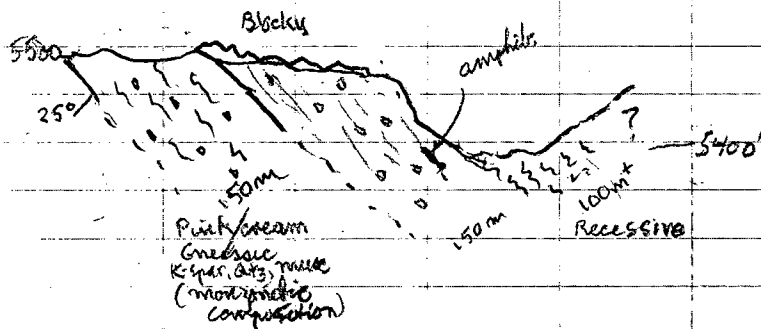 Blocky
5500
amphib.
25°
5400'
150m
150m
100m+
?
Recessive
Pink/cream
Gneissic
K-spar, Qtz, musc
(monzonitic
composition)